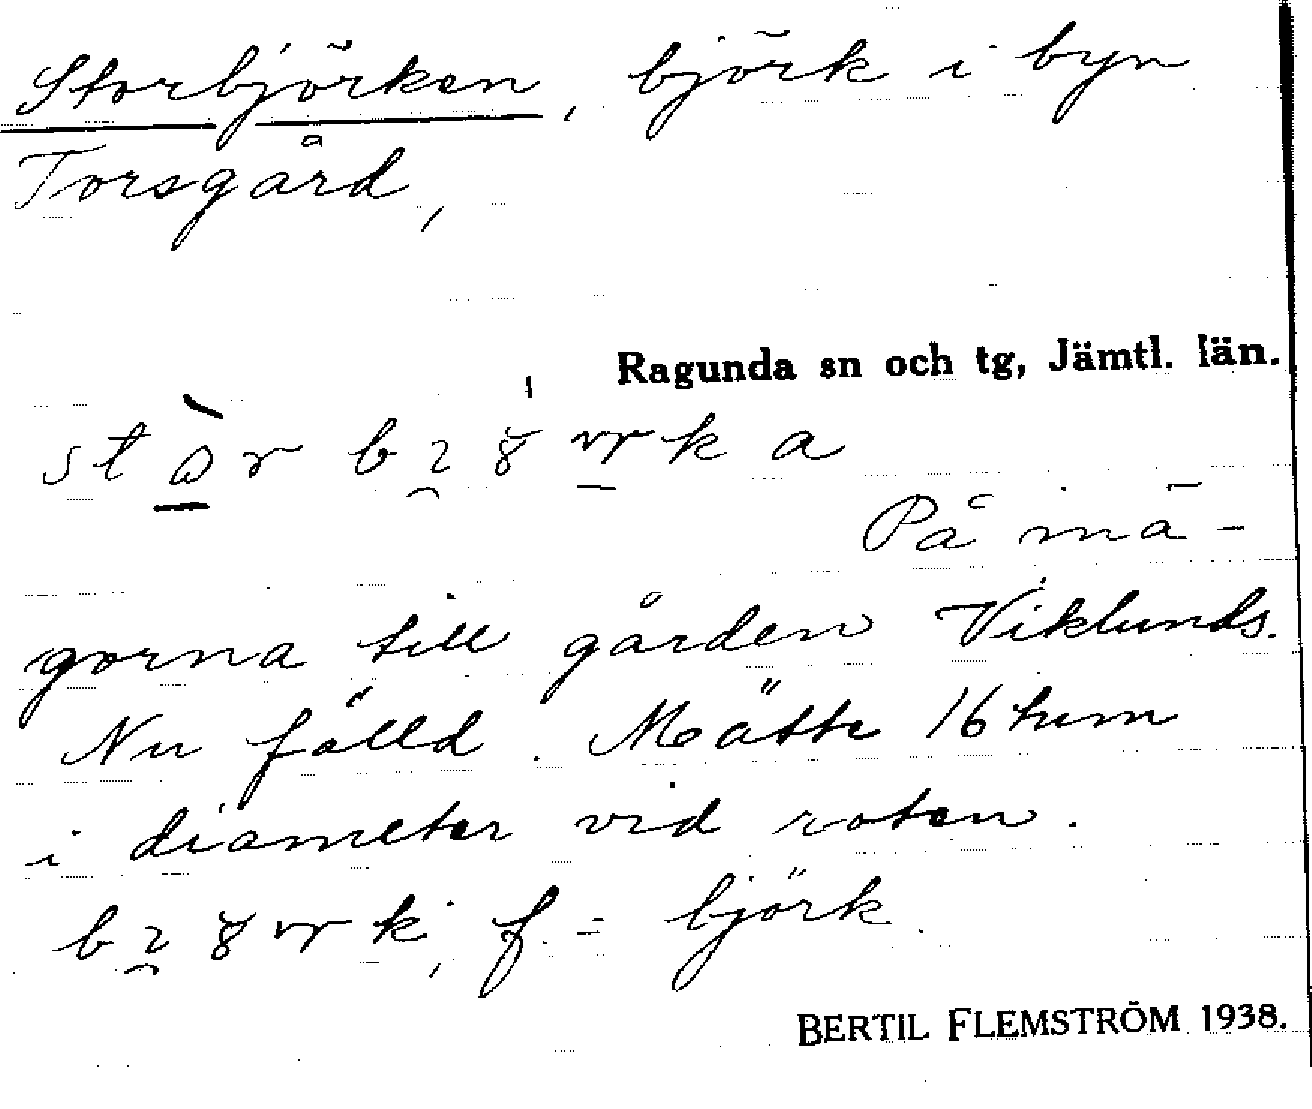 Storbjörken, björk i byn
Torsgård,
Ragunda sn och tg, Jämtl. län.
På må-
gorna till gården Viklunds.
Nu fälld. Mätte 16 tum
i diameter vid roten.
f. = björk.
BERTIL FLEMSTRÖM 1938.